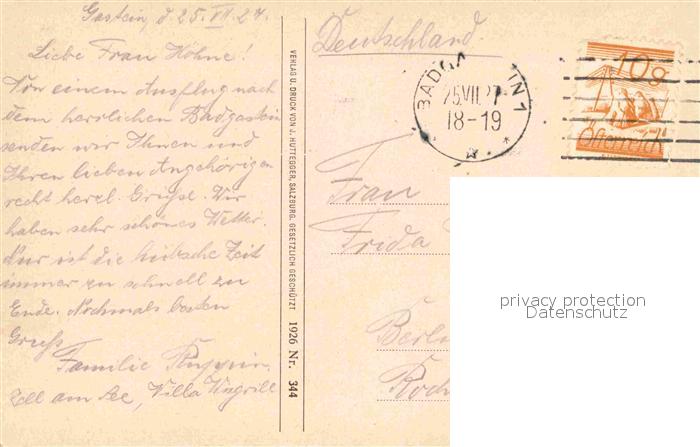 Gastein, d. 25. VII. 27.
Liebe Frau Höhne!
Von einem Ausflug nach
dem herrlichen Badgastein
senden wir Ihnen und
Ihren lieben Angehörigen
recht herzl. Grüße. Wir
haben sehr schönes Wetter.
Nur ist die hübsche Zeit
immer zu schnell zu
Ende. Nochmals besten
Gruß
Familie
Zell am See, Villa
VERLAG U. DRUCK VON J. HUTTEGGER, SALZBURG. GESETZLICH GESCHÜTZT 1926 Nr. 344
Deutschland.
BADGA IN 1
25.VII.27
18-19
10g
Österreich
Frau
Frida
Berlin
privacy protection
Datenschutz